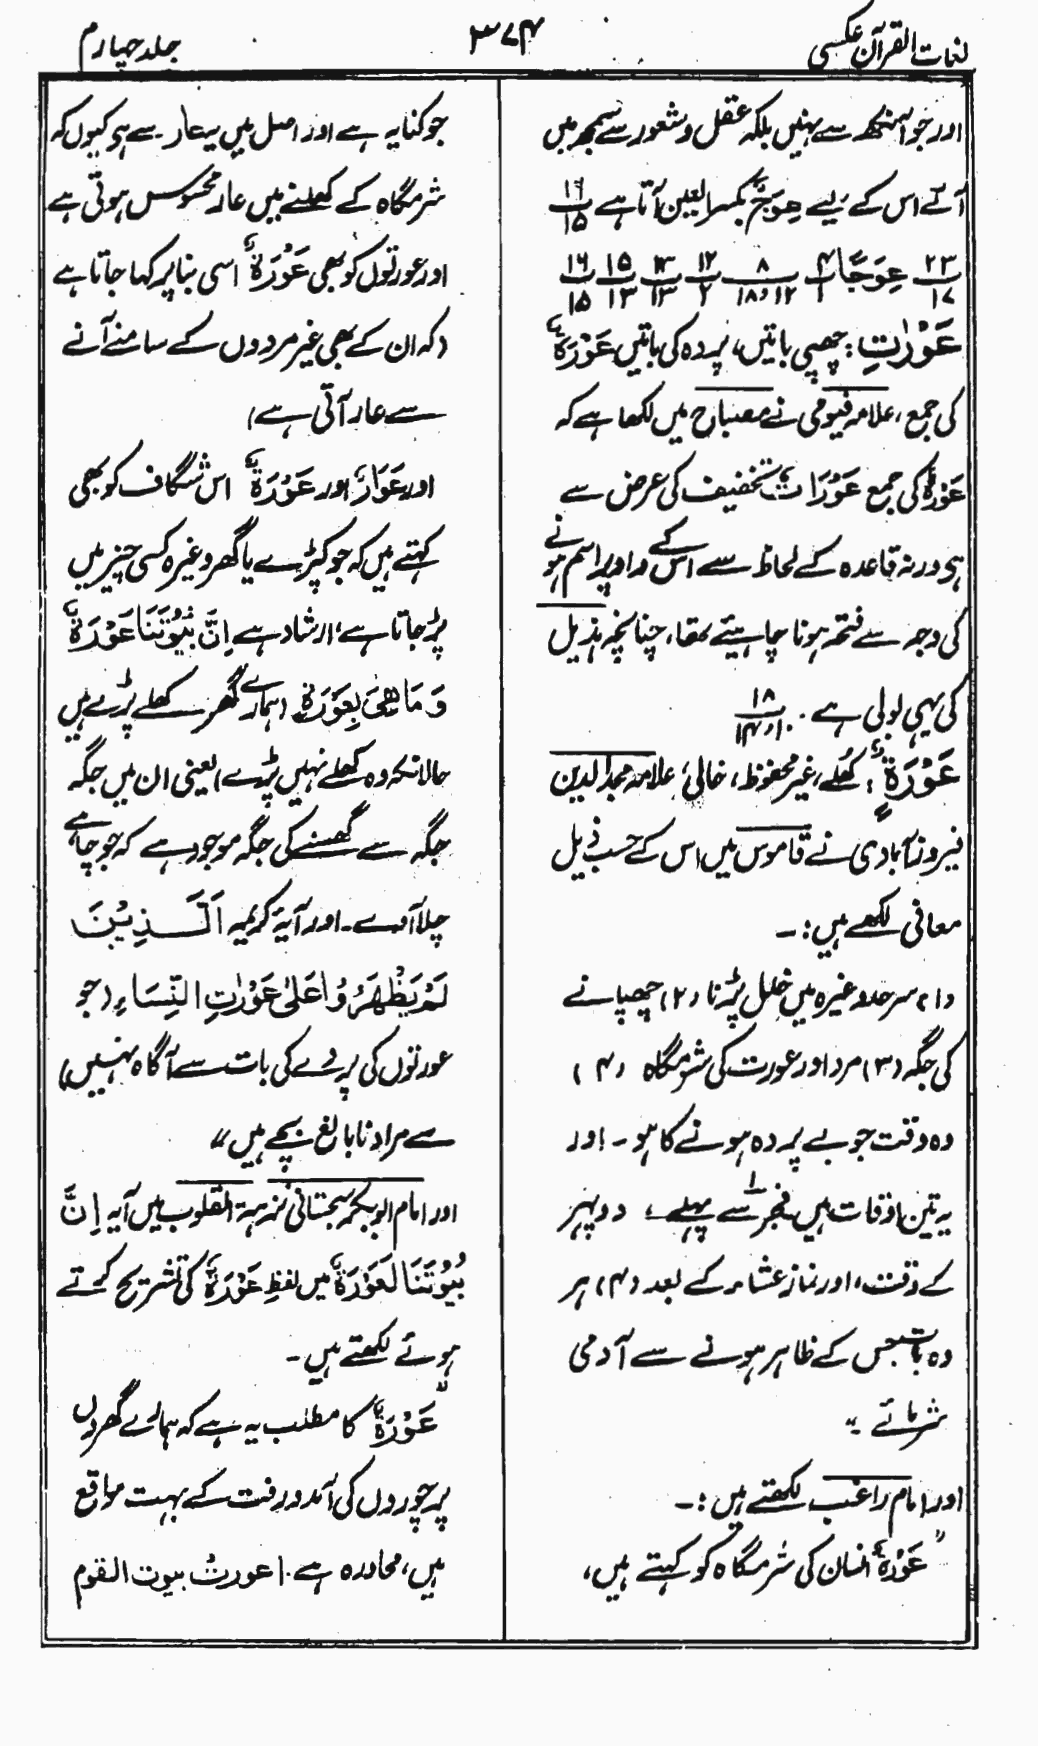 لغات القرآن عکسی
۳۷۴
جلد چہارم
اور جو آنکھ سے نہیں بلکہ عقل و شعور سے سمجھ میں
آئے اس کے لیے عِوَجٌ بکسر العین آتا ہے ۱۶/۱۵
۲۳/۱۷ عِوَجًا ۴/۱ ۸/۱۲،۱۸ ۱۲/۲ ۱۳/۱۳ ۱۵/۱۳ ۱۶/۱۵
عَوْرٰتِ: چھپی باتیں، پردہ کی باتیں عَوْرَةٌ
کی جمع، علامہ فیومی نے مصباح میں لکھا ہے کہ
عَوْرَةٌ کی جمع عَوْرَاتٌ تخفیف کی غرض سے
ہی ورنہ قاعدہ کے لحاظ سے اس کے واو پر اسم ہونے
کی وجہ سے فتحہ ہونا چاہیئے تھا، چنانچہ ہذیل
کی یہی بولی ہے۔ ۱۸/۱۰،۱۴
عَوْرَةٌ: کھلے، غیر محفوظ، خالی، علامہ مجد الدین
فیروز آبادی نے قاموس میں اس کے حسب ذیل
معانی لکھے ہیں:۔
(۱) سرحد وغیرہ میں خلل پڑنا (۲) چھپانے
کی جگہ (۳) مرد اور عورت کی شرمگاہ (۴)
وہ وقت جو بے پردہ ہونے کا ہو۔ اور
یہ تین اوقات ہیں فجر سے پہلے، دوپہر
کے وقت، اور نماز عشاء کے بعد (۴) ہر
وہ بات جس کے ظاہر ہونے سے آدمی
شرمائے۔"
اور امام راغب لکھتے ہیں:۔
"عَوْرَةٌ انسان کی شرمگاہ کو کہتے ہیں،
جو کنایہ ہے اور اصل میں یہ عار سے ہی کیوں کہ
شرمگاہ کے کھلنے میں عار محسوس ہوتی ہے
اور عورتوں کو بھی عَوْرَةٌ اسی بنا پر کہا جاتا ہے
(کہ ان کے بھی غیر مردوں کے سامنے آنے
سے عار آتی ہے)
اور عَوَارٌ اور عَوْرَةٌ اس شگاف کو بھی
کہتے ہیں کہ جو کپڑے یا گھر وغیرہ کسی چیز میں
پڑ جاتا ہے، ارشاد ہے اِنَّ بُيُوْتَنَا عَوْرَةٌ
وَمَا هِيَ بِعَوْرَةٍ (ہمارے گھر کھلے پڑے ہیں
حالانکہ وہ کھلے نہیں پڑے) یعنی ان میں جگہ
جگہ سے گھسنے کی جگہ موجود ہے کہ جو چاہے
چلا آوے۔ اور آیۂ کریمہ اَلَّـذِيْنَ
لَمْ يَظْهَرُوْا عَلٰى عَوْرٰتِ النِّسَاءِ (جو
عورتوں کی پردے کی بات سے آگاہ نہیں)
سے مراد نابالغ بچے ہیں"
اور امام ابوبکر سجستانی نزہۃ القلوب میں آیہ اِنَّ
بُيُوْتَنَا لَعَوْرَةٌ میں لفظِ عَوْرَةٌ کی تشریح کرتے
ہوئے لکھتے ہیں۔
"عَوْرَةٌ کا مطلب یہ ہے کہ ہمارے گھروں
پر چوروں کی آمد و رفت کے بہت مواقع
ہیں، محاورہ ہے۔ اعورتْ بیوت القوم